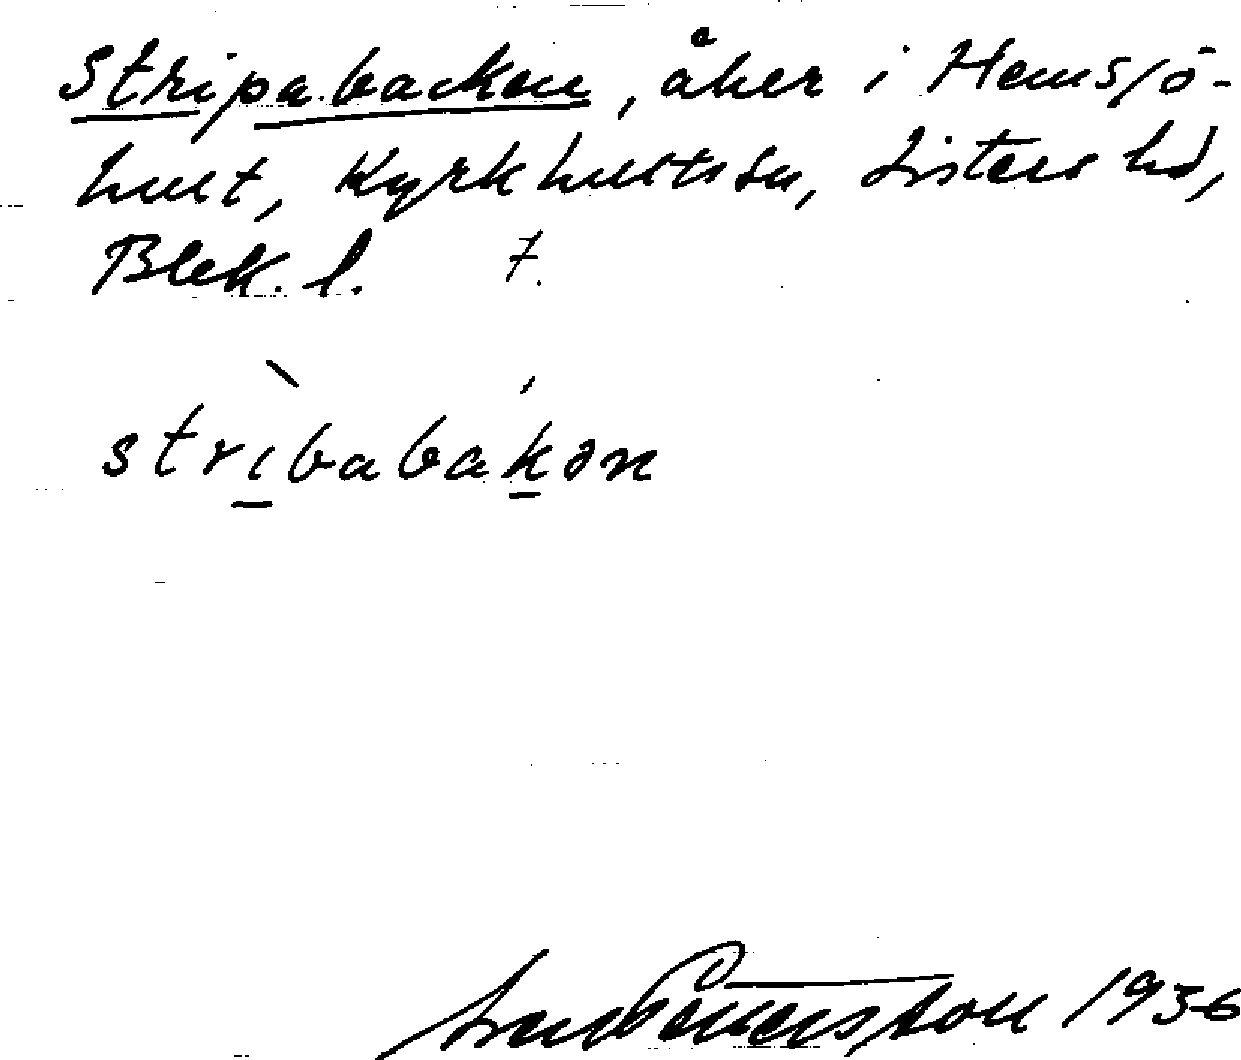 Stripabacken, åker i Hemsjö-
hult, Kyrkhults sn, Listers hd,
Blek. l. 7.
strìbabákən
1936